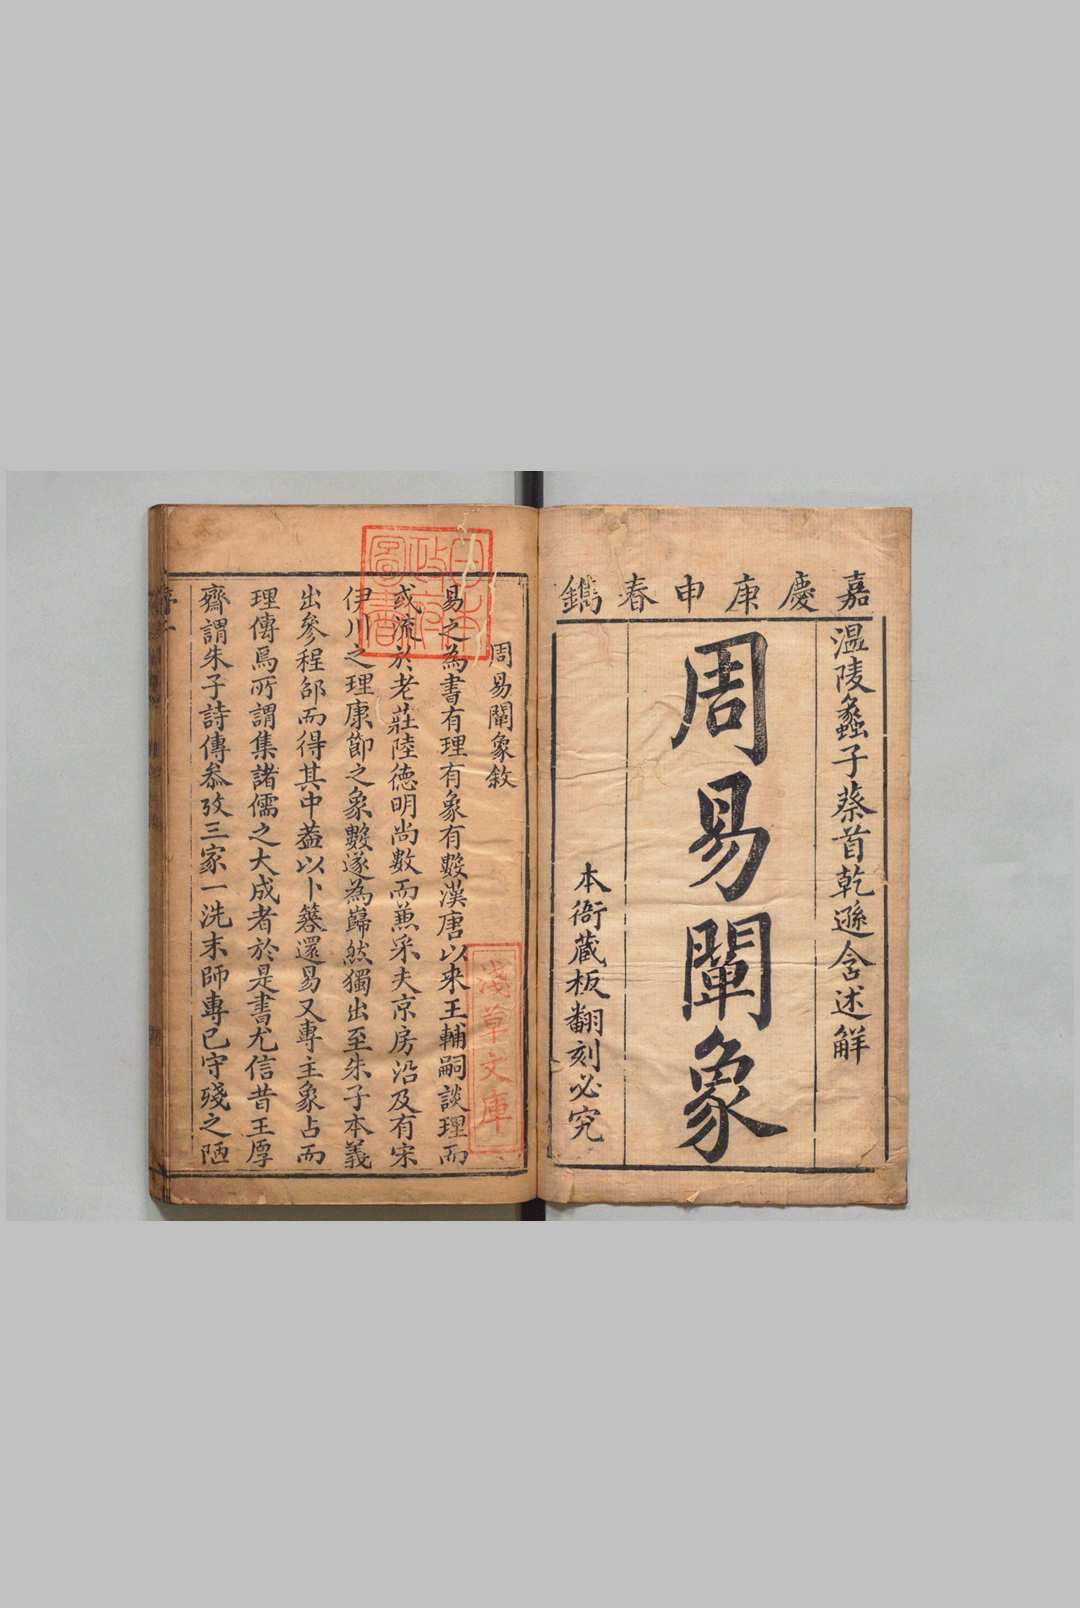 嘉慶庚申春鐫
温陵蠡子蔡首乾遜含述解
周易闡象
本衙藏板翻刻必究
周易闡象敘
易之為書有理有象有數漢唐以來王輔嗣談理而
或流於老莊陸德明尚數而兼采夫京房沿及有宋
伊川之理康節之象數遂為巋然獨出至朱子本義
出參程邵而得其中葢以卜簭還易又專主象占而
理傳焉所謂集諸儒之大成者於是書尤信昔王厚
齋謂朱子詩傳叅攷三家一洗末師專已守殘之陋
日本
政府
圖書
淺草文庫